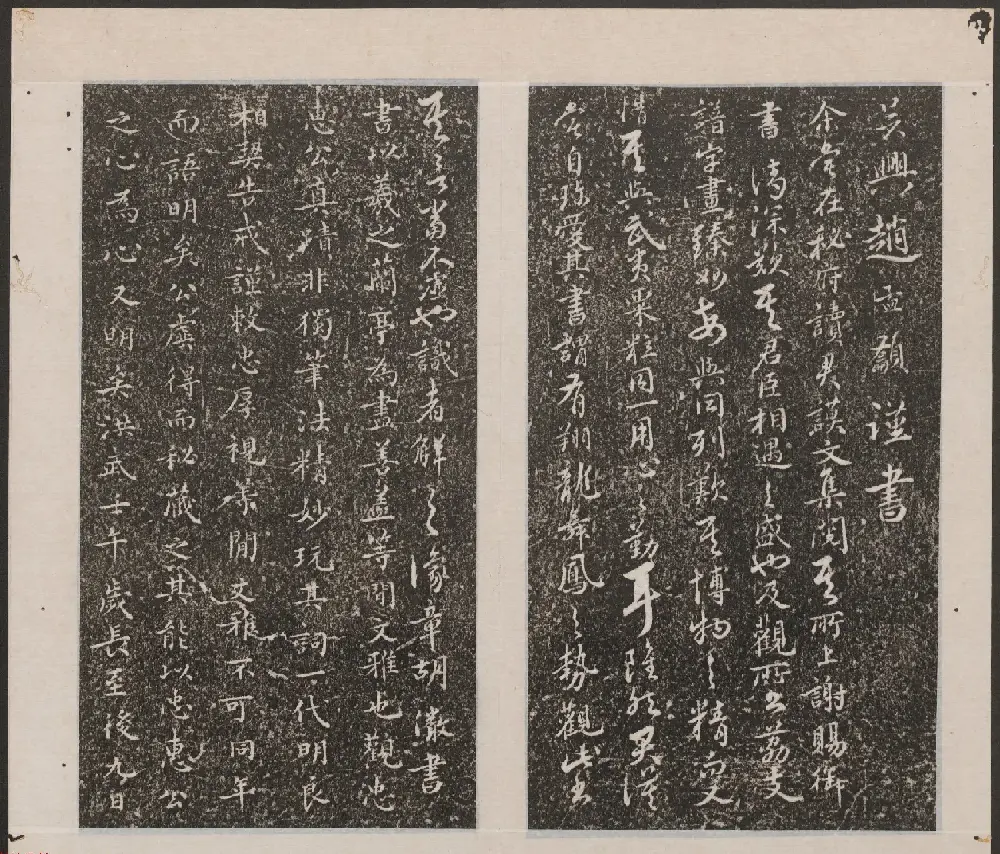 吴興趙孟頫謹書
余嘗在秘府讀君謨文集閱其所上謝賜御
書詩深歎其君臣相遇之盛也及觀所書荔支
譜字畫臻妙每與同列歎其博物之精究
情其與武夷粟粒同一用心之勤耳隆然君謨
嘗自珍愛其書謂有翔龍舞鳳之勢觀此書
其言當不虛也識者解之豫章胡澂書
書以羲之蘭亭為盡善蓋等閒文雅也觀忠
惠公真蹟非獨筆法精妙玩其詞一代明良
相契告戒謹敕忠厚視等閒文雅不可同年
而語明矣公虞得而秘藏之其能以忠惠公
之心為心又明矣洪武壬午歲長至後九日